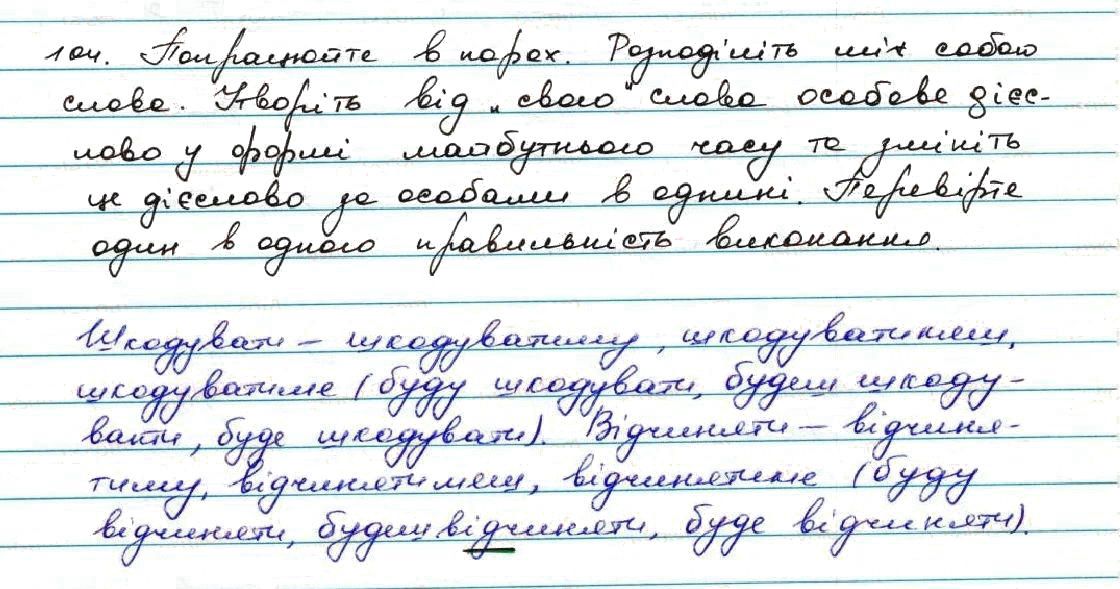 104. Попрацюйте в парах. Розподіліть між собою
слова. Утворіть від „свого" слова особове дієс-
лово у формі майбутнього часу та змініть
це дієслово за особами в однині. Перевірте
один в одного правильність виконання.
Шкодувати – шкодуватиму, шкодуватимеш,
шкодуватиме (буду шкодувати, будеш шкоду-
вати, буде шкодувати). Відчиняти – відчиня-
тиму, відчинятимеш, відчинятиме (буду
відчиняти, будеш відчиняти, буде відчиняти).